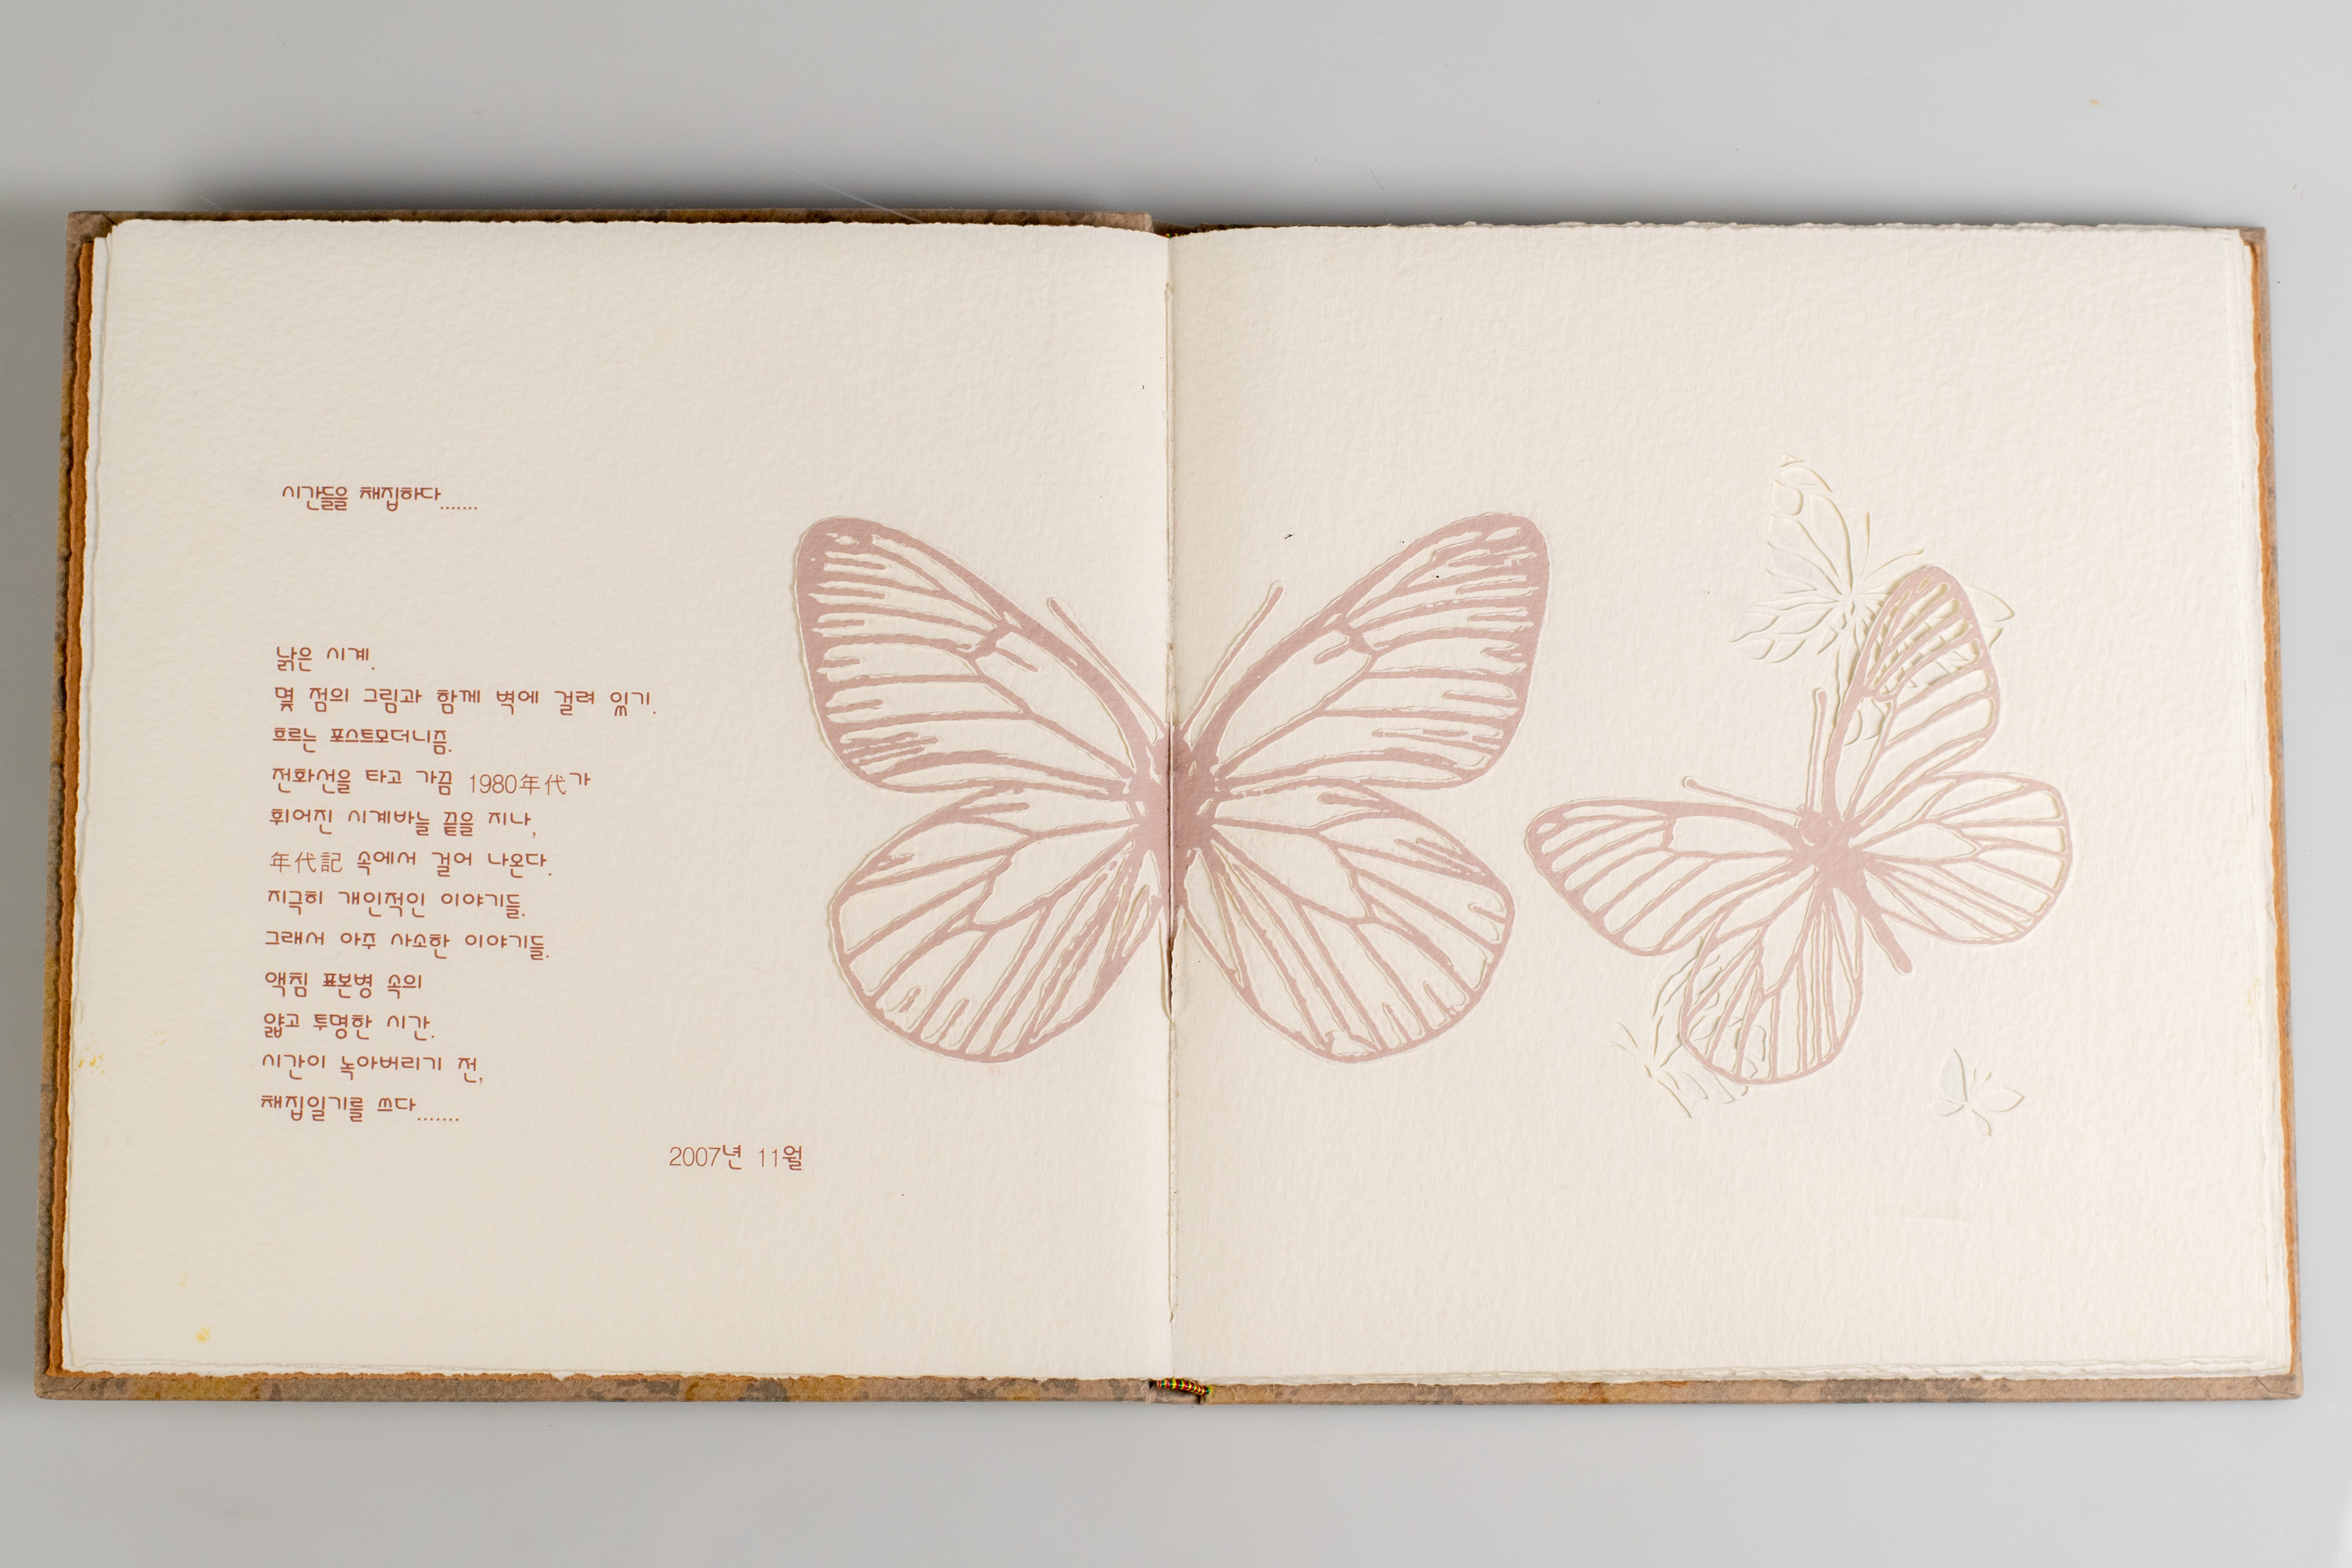 시간들을 채집하다.......
낡은 시계.
몇 점의 그림과 함께 벽에 걸려 있기.
흐르는 포스트모더니즘.
전화선을 타고 가끔 1980年代가
휘어진 시계바늘 끝을 지나,
年代記 속에서 걸어 나온다.
지극히 개인적인 이야기들.
그래서 아주 사소한 이야기들.
액침 표본병 속의
얇고 투명한 시간.
시간이 녹아버리기 전,
채집일기를 쓰다.......
2007년 11월